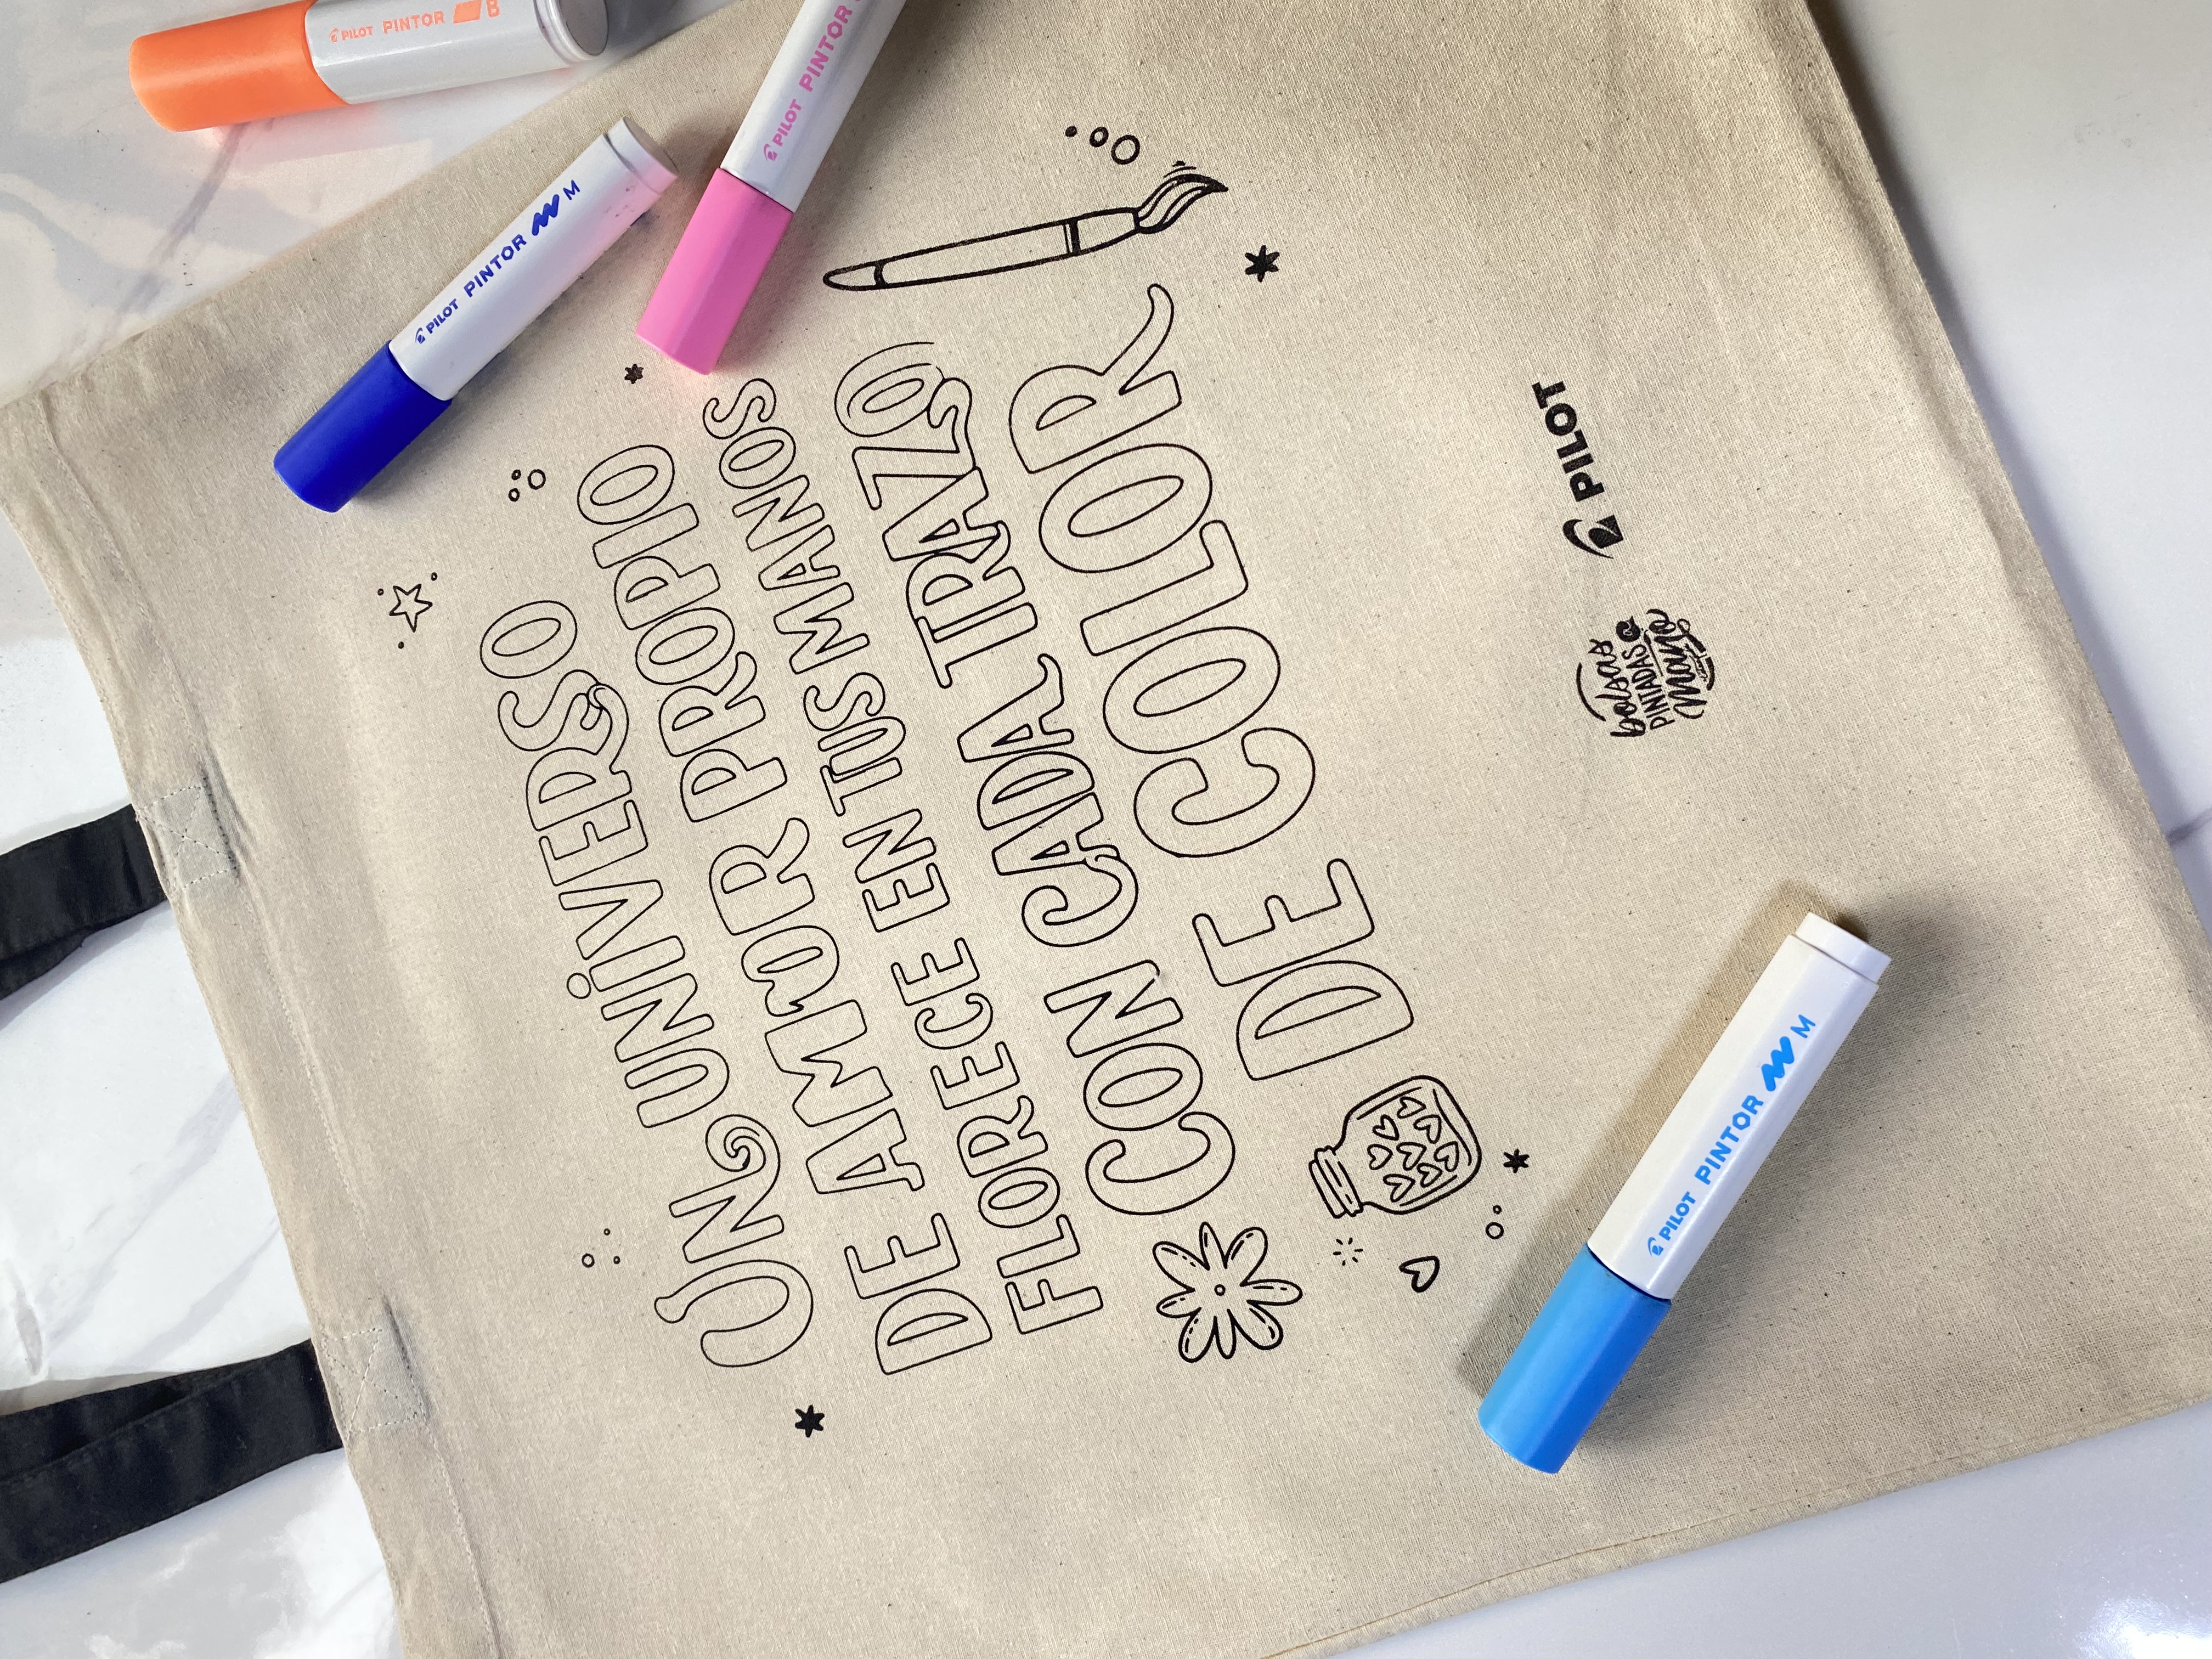 UN UNIVERSO
DE AMOR PROPIO
FLORECE EN TUS MANOS
CON CADA TRAZO
DE COLOR
bolsas
PINTADAS a
Mano
PILOT
PILOT PINTOR B
PILOT PINTOR M
PILOT PINTOR
PILOT PINTOR M